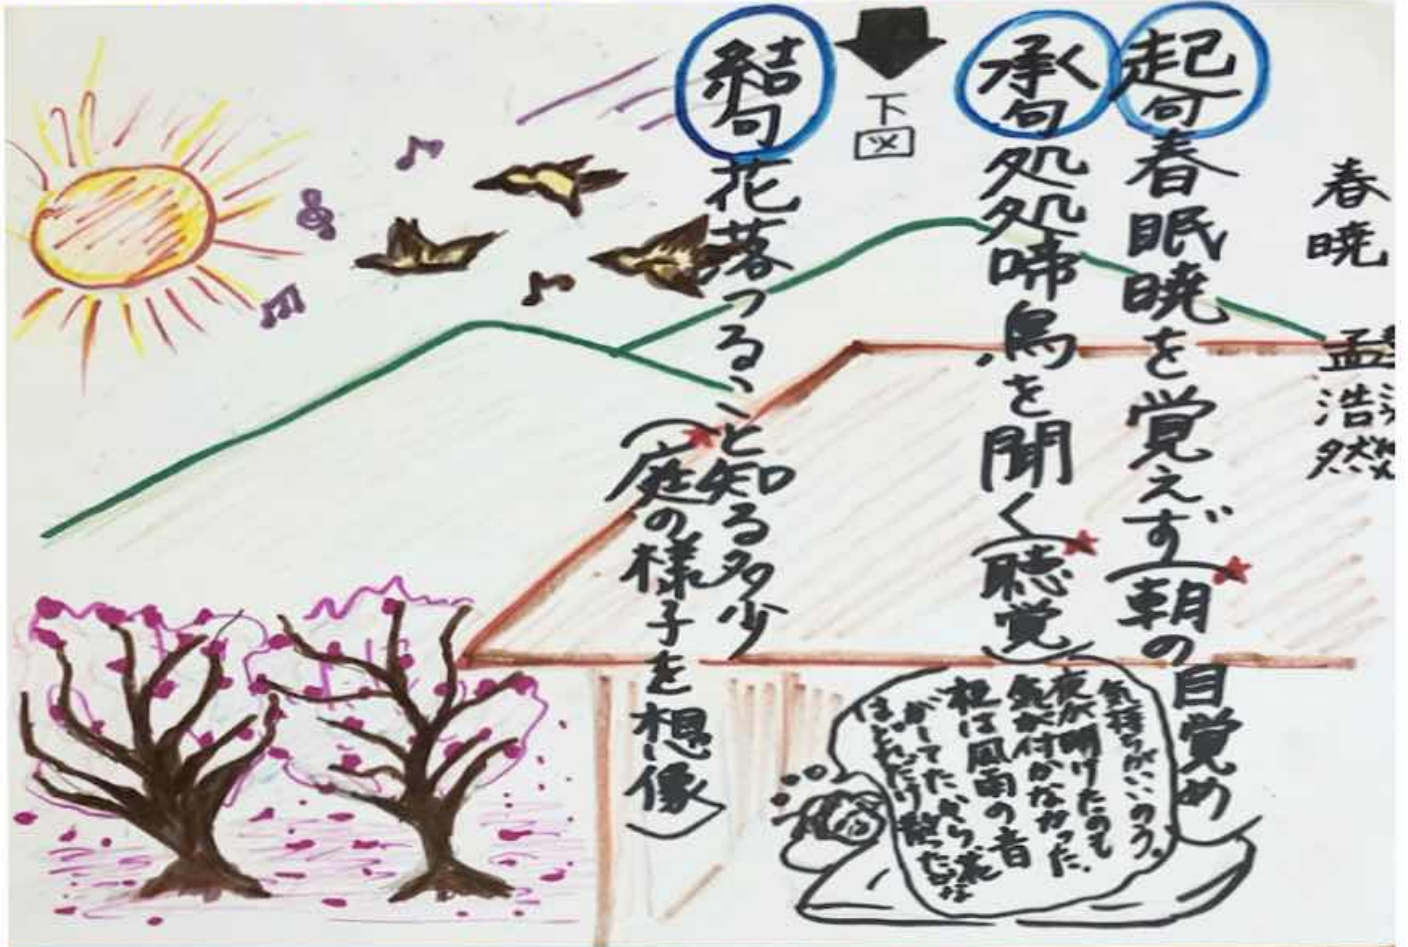 春暁
孟浩然
起句春眠暁を覚えず(朝の目覚め
承句処処啼鳥を聞く(聴覚)
下図
結句花落つること知る多少
(庭の様子を想像)
気持ちがいいのう。
夜が明けたのも
気が付かなかった。
は風雨の音
がしてたから、花
はどれだけ散ったかな